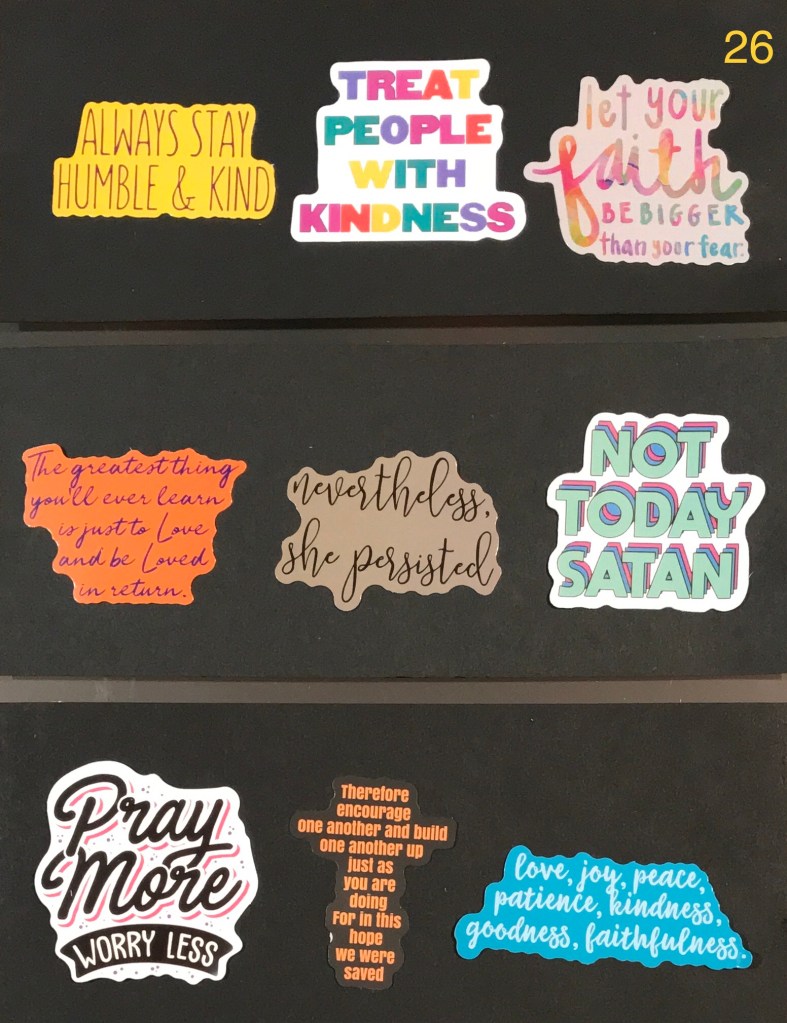 26
ALWAYS STAY
HUMBLE & KIND
TREAT
PEOPLE
WITH
KINDNESS
let your
faith
BE BIGGER
than your fear.
The greatest thing
you'll ever learn
is just to Love
and be Loved
in return.
nevertheless,
she persisted
NOT
TODAY
SATAN
Pray
More
WORRY LESS
Therefore
encourage
one another and build
one another up
just as
you are
doing
For in this
hope
we were
saved
love, joy, peace,
patience, kindness,
goodness, faithfulness.